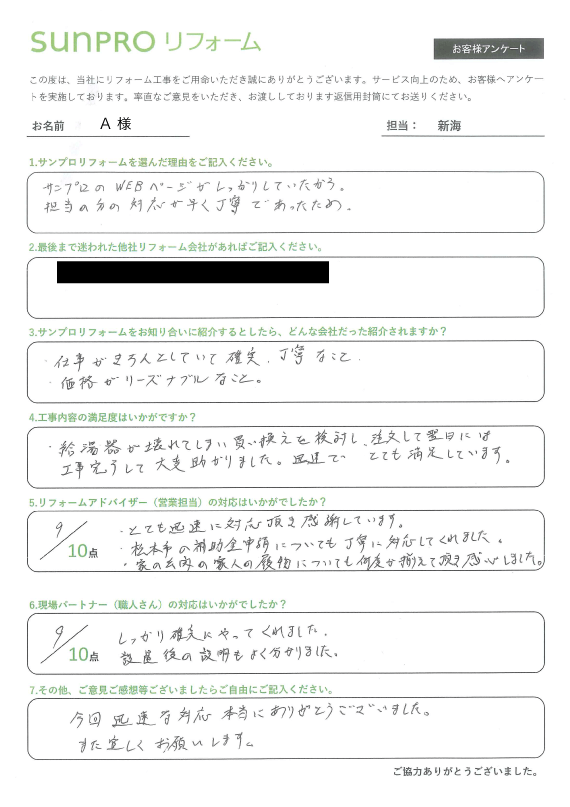 SUNPRO リフォーム
お客様アンケート
この度は、当社にリフォーム工事をご用命いただき誠にありがとうございます。サービス向上のため、お客様へアンケー
トを実施しております。率直なご意見をいただき、お渡ししております返信用封筒にてお送りください。
お名前 A 様 担当： 新海
1.サンプロリフォームを選んだ理由をご記入ください。
サンプロの WEBページがしっかりしていたから。
担当の方の対応が早く丁寧であったため。
2.最後まで迷われた他社リフォーム会社があればご記入ください。
3.サンプロリフォームをお知り合いに紹介するとしたら、どんな会社だった紹介されますか？
・仕事がきちんとしていて確実、丁寧なこと.
・価格がリーズナブルなこと。
4.工事内容の満足度はいかがですか？
・給湯器が壊れてしまい買い換えを検討し、注文して翌日には
工事完了して大変助かりました。迅速で とても満足しています。
5.リフォームアドバイザー（営業担当）の対応はいかがでしたか？
9/10点
・とても迅速に対応頂き感謝しています。
・松本市の補助金申請についても丁寧に対応してくれました。
・家の玄関の家人の履物についても何度か揃えて頂き感心しました。
6.現場パートナー（職人さん）の対応はいかがでしたか？
9/10点
しっかり確実にやってくれました.
設置後の説明もよく分かりました。
7.その他、ご意見ご感想等ございましたらご自由にご記入ください。
今回 迅速な対応 本当にありがとうございました。
また宜しくお願いします。
ご協力ありがとうございました。